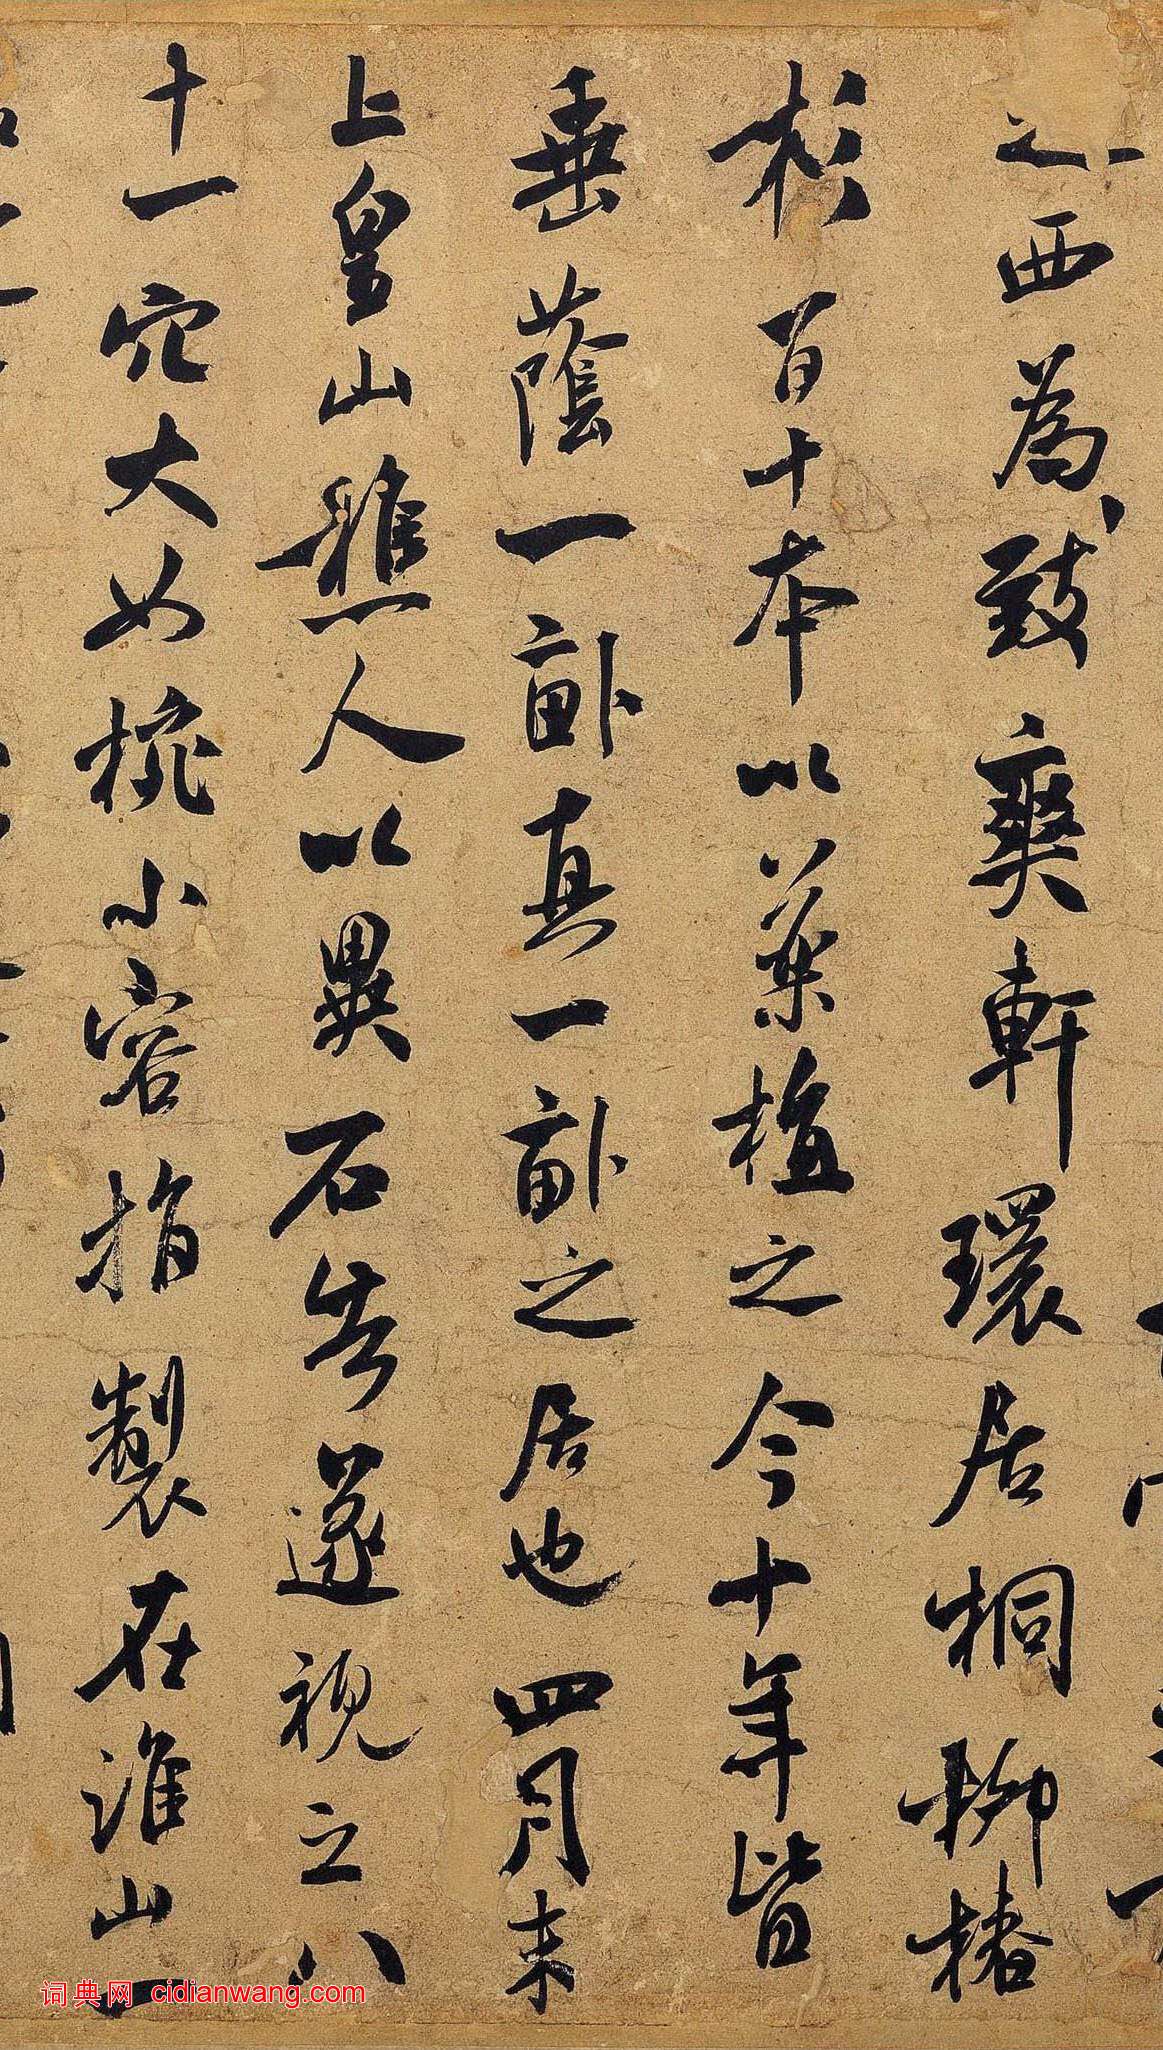 之西為致爽軒環居桐柳椿
杉百十本以葉植之今十年皆
垂蔭一畝真一畝之居也四月末
上皇山樵人以異石告遂視之八
十一穴大如椀小容指製在淮山一
词典网 cidianwang.com